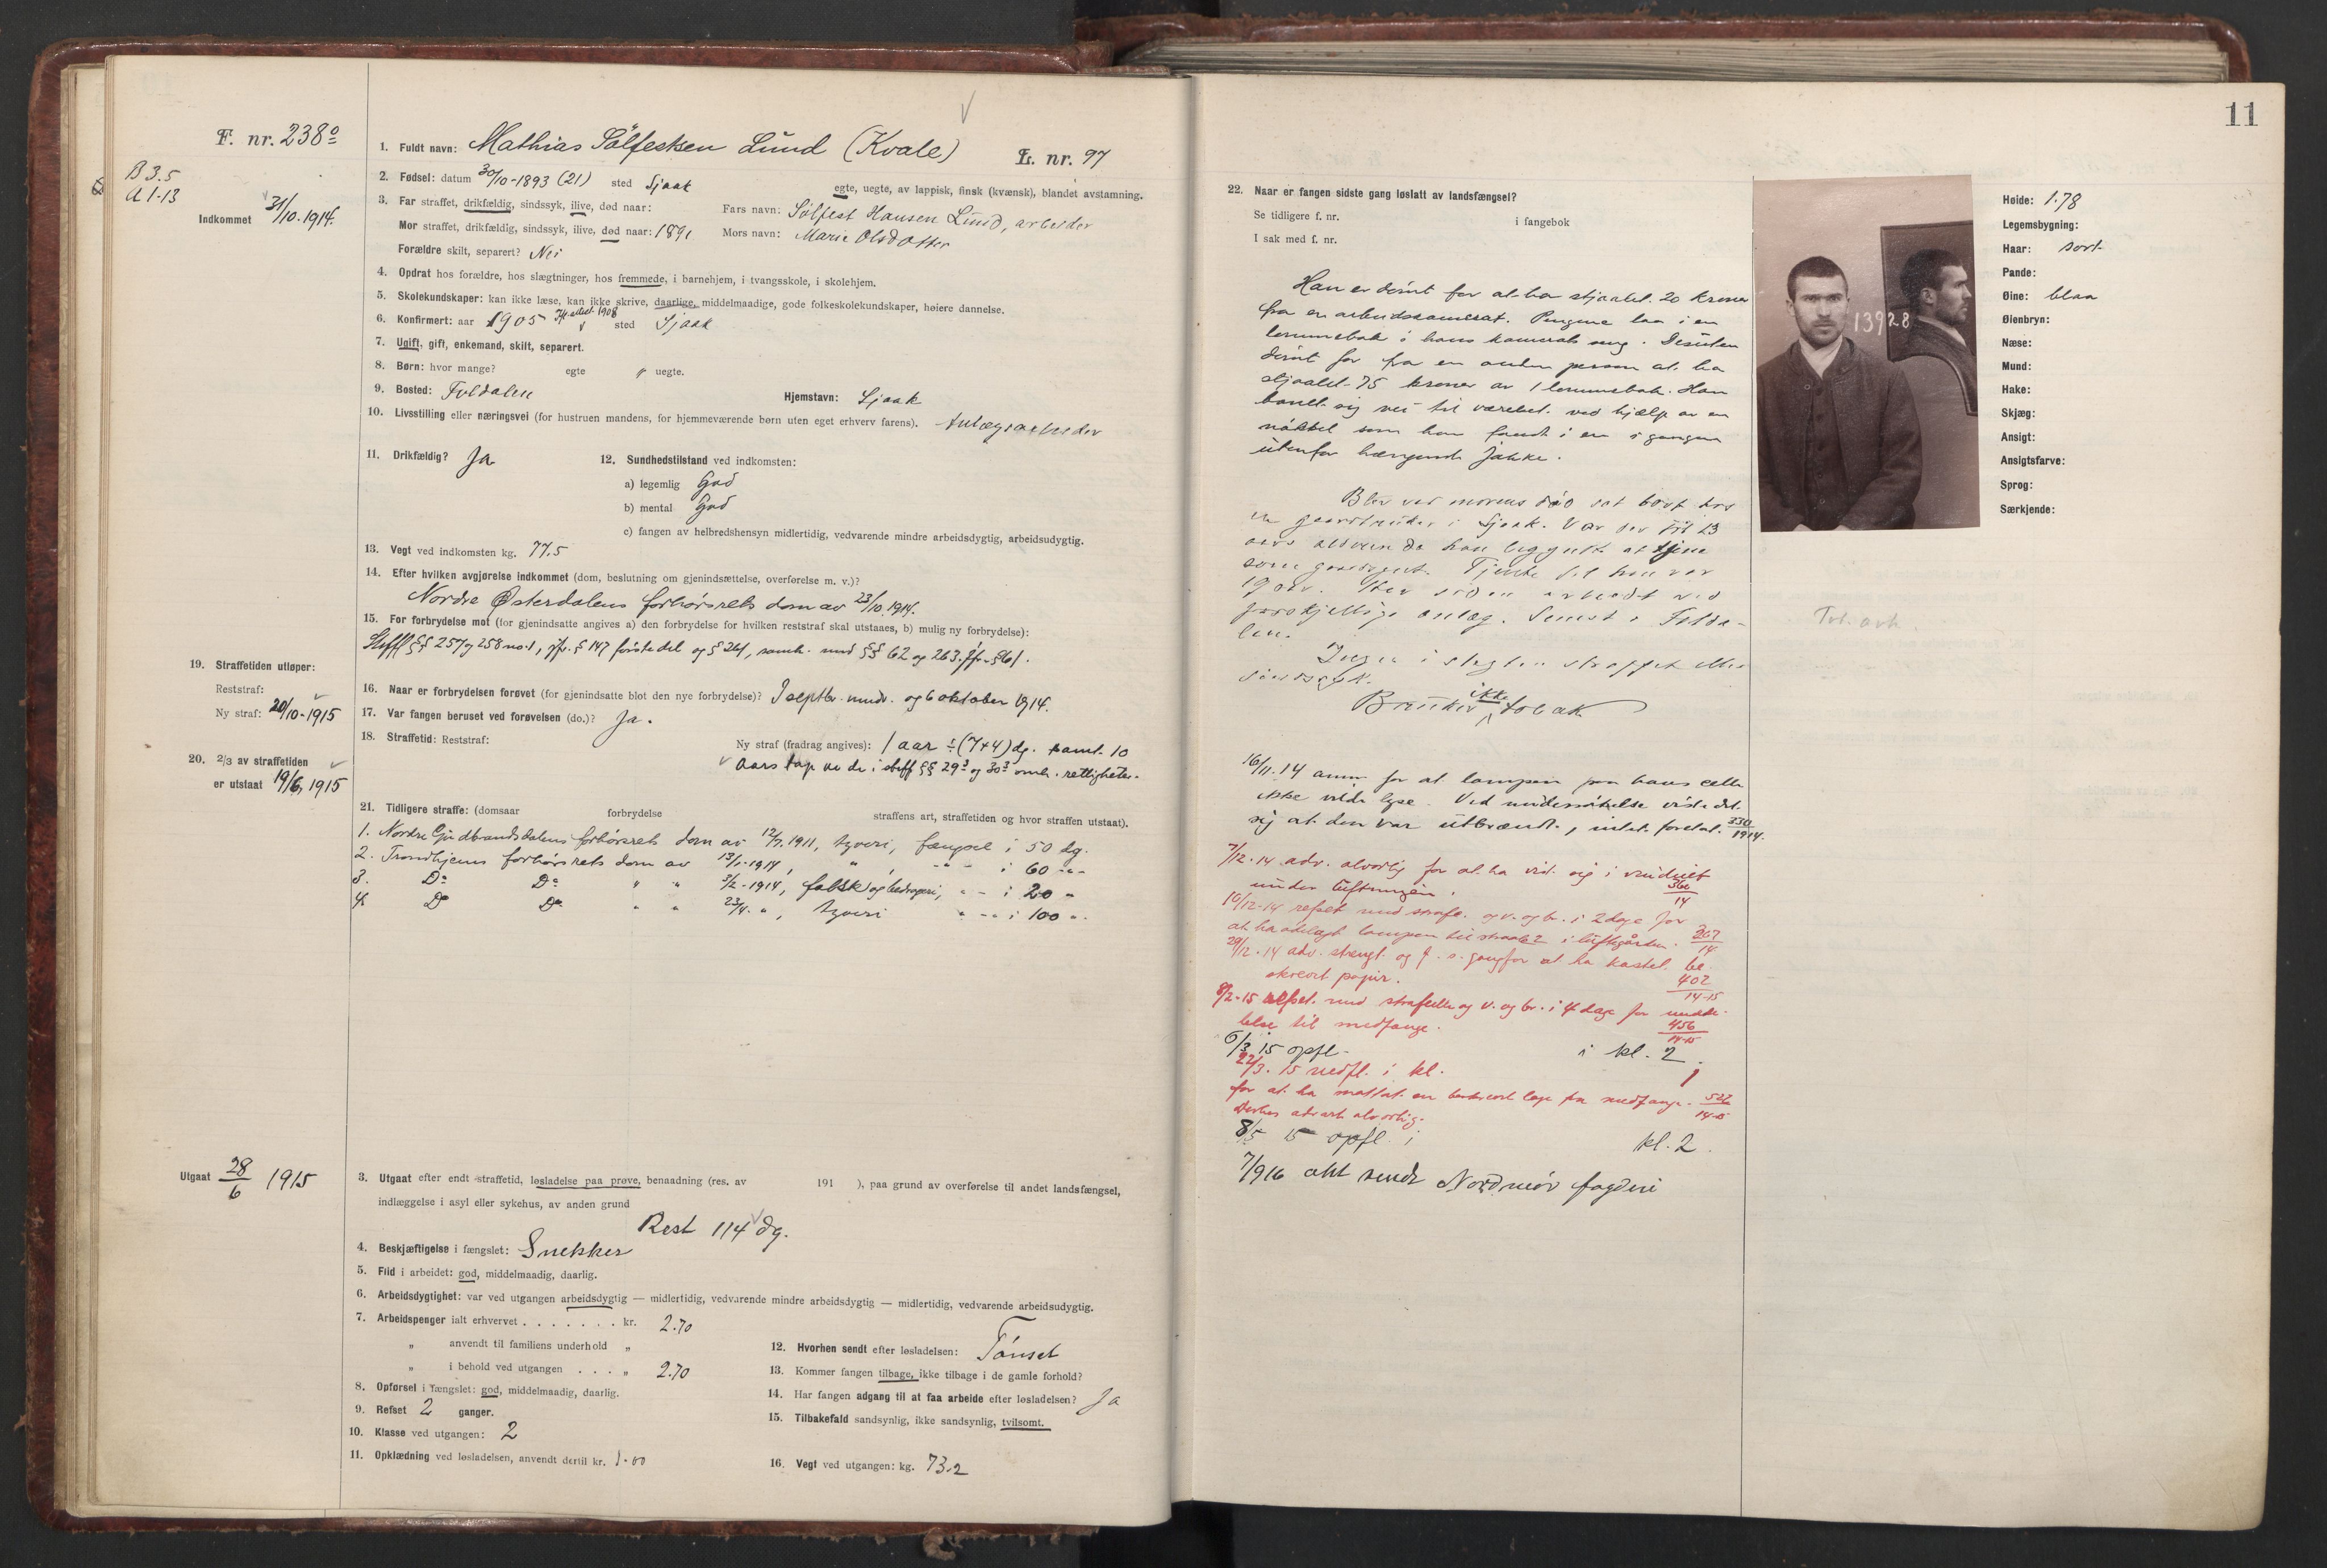 F. nr. 238º
B 3.5
A 1-13
Indkommet 31/10. 1914.
1. Fuldt navn: Mathias Sölfestsen Lund (Kvale) L. nr. 97
2. Fødsel: datum 30/10-1893 (21) sted Sjaak egte, uegte, av lappisk, finsk (kvænsk), blandet avstamning.
3. Far straffet, drikfældig, sindssyk, ilive, død naar: Fars navn: Sölfest Hansen Lund, arbeider
Mor straffet, drikfældig, sindssyk, ilive, død naar: 1891 Mors navn: Marie Olsdatter
Forældre skilt, separert? Nei
4. Opdrat hos forældre, hos slægtninger, hos fremmede, i barnehjem, i tvangsskole, i skolehjem.
5. Skolekundskaper: kan ikke læse, kan ikke skrive, daarlige, middelmaadige, gode folkeskolekundskaper, høiere dannelse.
6. Konfirmert: aar 1905 1908 sted Sjaak
7. Ugift, gift, enkemand, skilt, separert.
8. Børn: hvor mange? egte " uegte.
9. Bosted: Foldalen Hjemstavn: Sjaak
10. Livsstilling eller næringsvei (for hustruen mandens, for hjemmeværende børn uten eget erhverv farens). Anlægsarbeider
11. Drikfældig? Ja 12. Sundhedstilstand ved indkomsten:
a) legemlig God
b) mental God
c) fangen av helbredshensyn midlertidig, vedvarende mindre arbeidsdygtig, arbeidsudygtig.
13. Vegt ved indkomsten kg. 77.5
14. Efter hvilken avgjørelse indkommet (dom, beslutning om gjenindsættelse, overførelse m. v.)?
Nordre Østerdalens forhørsrets dom av 23/10 1914.
15. For forbrydelse mot (for gjenindsatte angives a) den forbrydelse for hvilken reststraf skal utstaaes, b) mulig ny forbrydelse):
Strffl §§ 257 og 258 no. 1, jfr. § 147 første del og § 261, samh. med §§ 62 og 263. jfr. § 61.
19. Straffetiden utløper:
Reststraf:
Ny straf: 20/10-1915
16. Naar er forbrydelsen forøvet (for gjenindsatte blot den nye forbrydelse)? I septbr. mnd. og 6 oktober 1914.
17. Var fangen beruset ved forøvelsen (do.)? Ja.
18. Straffetid: Reststraf: Ny straf (fradrag angives): 1 aar ÷ (7+4) dg. samt. 10
aars tap av de i strff §§ 29³ og 30³ omh. rettigheter.
20. 2/3 av straffetiden
er utstaat 19/6, 1915
21. Tidligere straffe: (domsaar forbrydelse straffens art, straffetiden og hvor straffen utstaat).
1. Nordre Gudbrandsdalens forhörsrets dom av 12/7. 1911, tyveri, fængsel i 50 dg.
2. Trondhjems forhörsrets dom av 13/1-1914, " , " - i 60 - " -
3. Do Do " " 3/2-1914, falsk og bedrageri, " - i 20 "
4. Do Do " " 23/4. " , tyveri " - " i 100 " .
Utgaat 28/6 1915
3. Utgaat efter endt straffetid, løsladelse paa prøve, benaadning (res. av 191 ), paa grund av overførelse til andet landsfængsel,
indlæggelse i asyl eller sykehus, av anden grund
Rest 114 dg.
4. Beskjæftigelse i fængslet: Snekker
5. Flid i arbeidet: god, middelmaadig, daarlig.
6. Arbeidsdygtighet: var ved utgangen arbeidsdygtig — midlertidig, vedvarende mindre arbeidsdygtig — midlertidig, vedvarende arbeidsudygtig.
7. Arbeidspenger ialt erhvervet . . . . . . . kr. 2.70
" anvendt til familiens underhold "
" i behold ved utgangen . . . " 2.70
8. Opførsel i fængslet: god, middelmaadig, daarlig.
9. Refset 2 ganger.
10. Klasse ved utgangen: 2
11. Opklædning ved løsladelsen, anvendt dertil kr. 1.00
12. Hvorhen sendt efter løsladelsen: Tönset
13. Kommer fangen tilbage, ikke tilbage i de gamle forhold?
14. Har fangen adgang til at faa arbeide efter løsladelsen? Ja
15. Tilbakefald sandsynlig, ikke sandsynlig, tvilsomt.
16. Vegt ved utgangen: kg. 73.2
11
22. Naar er fangen sidste gang løslatt av landsfængsel?
Se tidligere f. nr. i fangebok
I sak med f. nr.
Han er dömt for at ha stjaalet 20 kroner
fra en arbeidskamerat. Pengene laa i en
lommebok i hans kamerats seng. Desuten
dömt for fra en anden person at ha
stjaalet 75 kroner av 1 lommebok. Han
banet sig vei til værelset ved hjælp av en
nökkel som han fandt i en i gangen
utenfor hængende jakke.
Blev ved morens död sat bort hos
en gaardbruker i Sjaak. Var der til 13
aars alderen da han begyndte at tjene
som gaardsgut. Tjente til han var
19 aar. Har siden arbeidet ved
forskjellige anlæg. Senest i Folda-
len.
Ingen i slegten straffet eller
sindssyk.
Bruker ikke tobak
16/11.14 anm. for at lampen paa hans celle
ikke vilde lyse. Ved undersökelse viste det
sig at den var utbrændt, intet foretat. 330/1914.
7/12.14 adv. alvorlig for at ha vist sig i vinduet
under luftningen. 360/14
10/12-14 refset med strafc. og v. og br. i 2 dage for
at ha ödelagt lampen i luftegården. 367/14
29/12.14 adv. strengt og f. s. gang for at ha kastet be-
skrevet papir. 402/14-15
8/2-15 refset med strafcelle og v. og br. i 4 dage for medde-
lelse til medfange. 456/14-15
6/3 15 opfl. i kl. 2.
22/3. 15 nedfl. i kl. 1
for at ha mottat en beskrevet lap fra medfange. 527/14-15
Derhos advart alvorlig.
8/5 15 opfl. i kl. 2.
7/9 16 akt sendt Nordmör fogderi
13928
Høide: 1.78
Legemsbygning:
Haar: sort
Pande:
Øine: blaa
Øienbryn:
Næse:
Mund:
Hake:
Skjæg:
Ansigt:
Ansigtsfarve:
Sprog:
Særkjende: